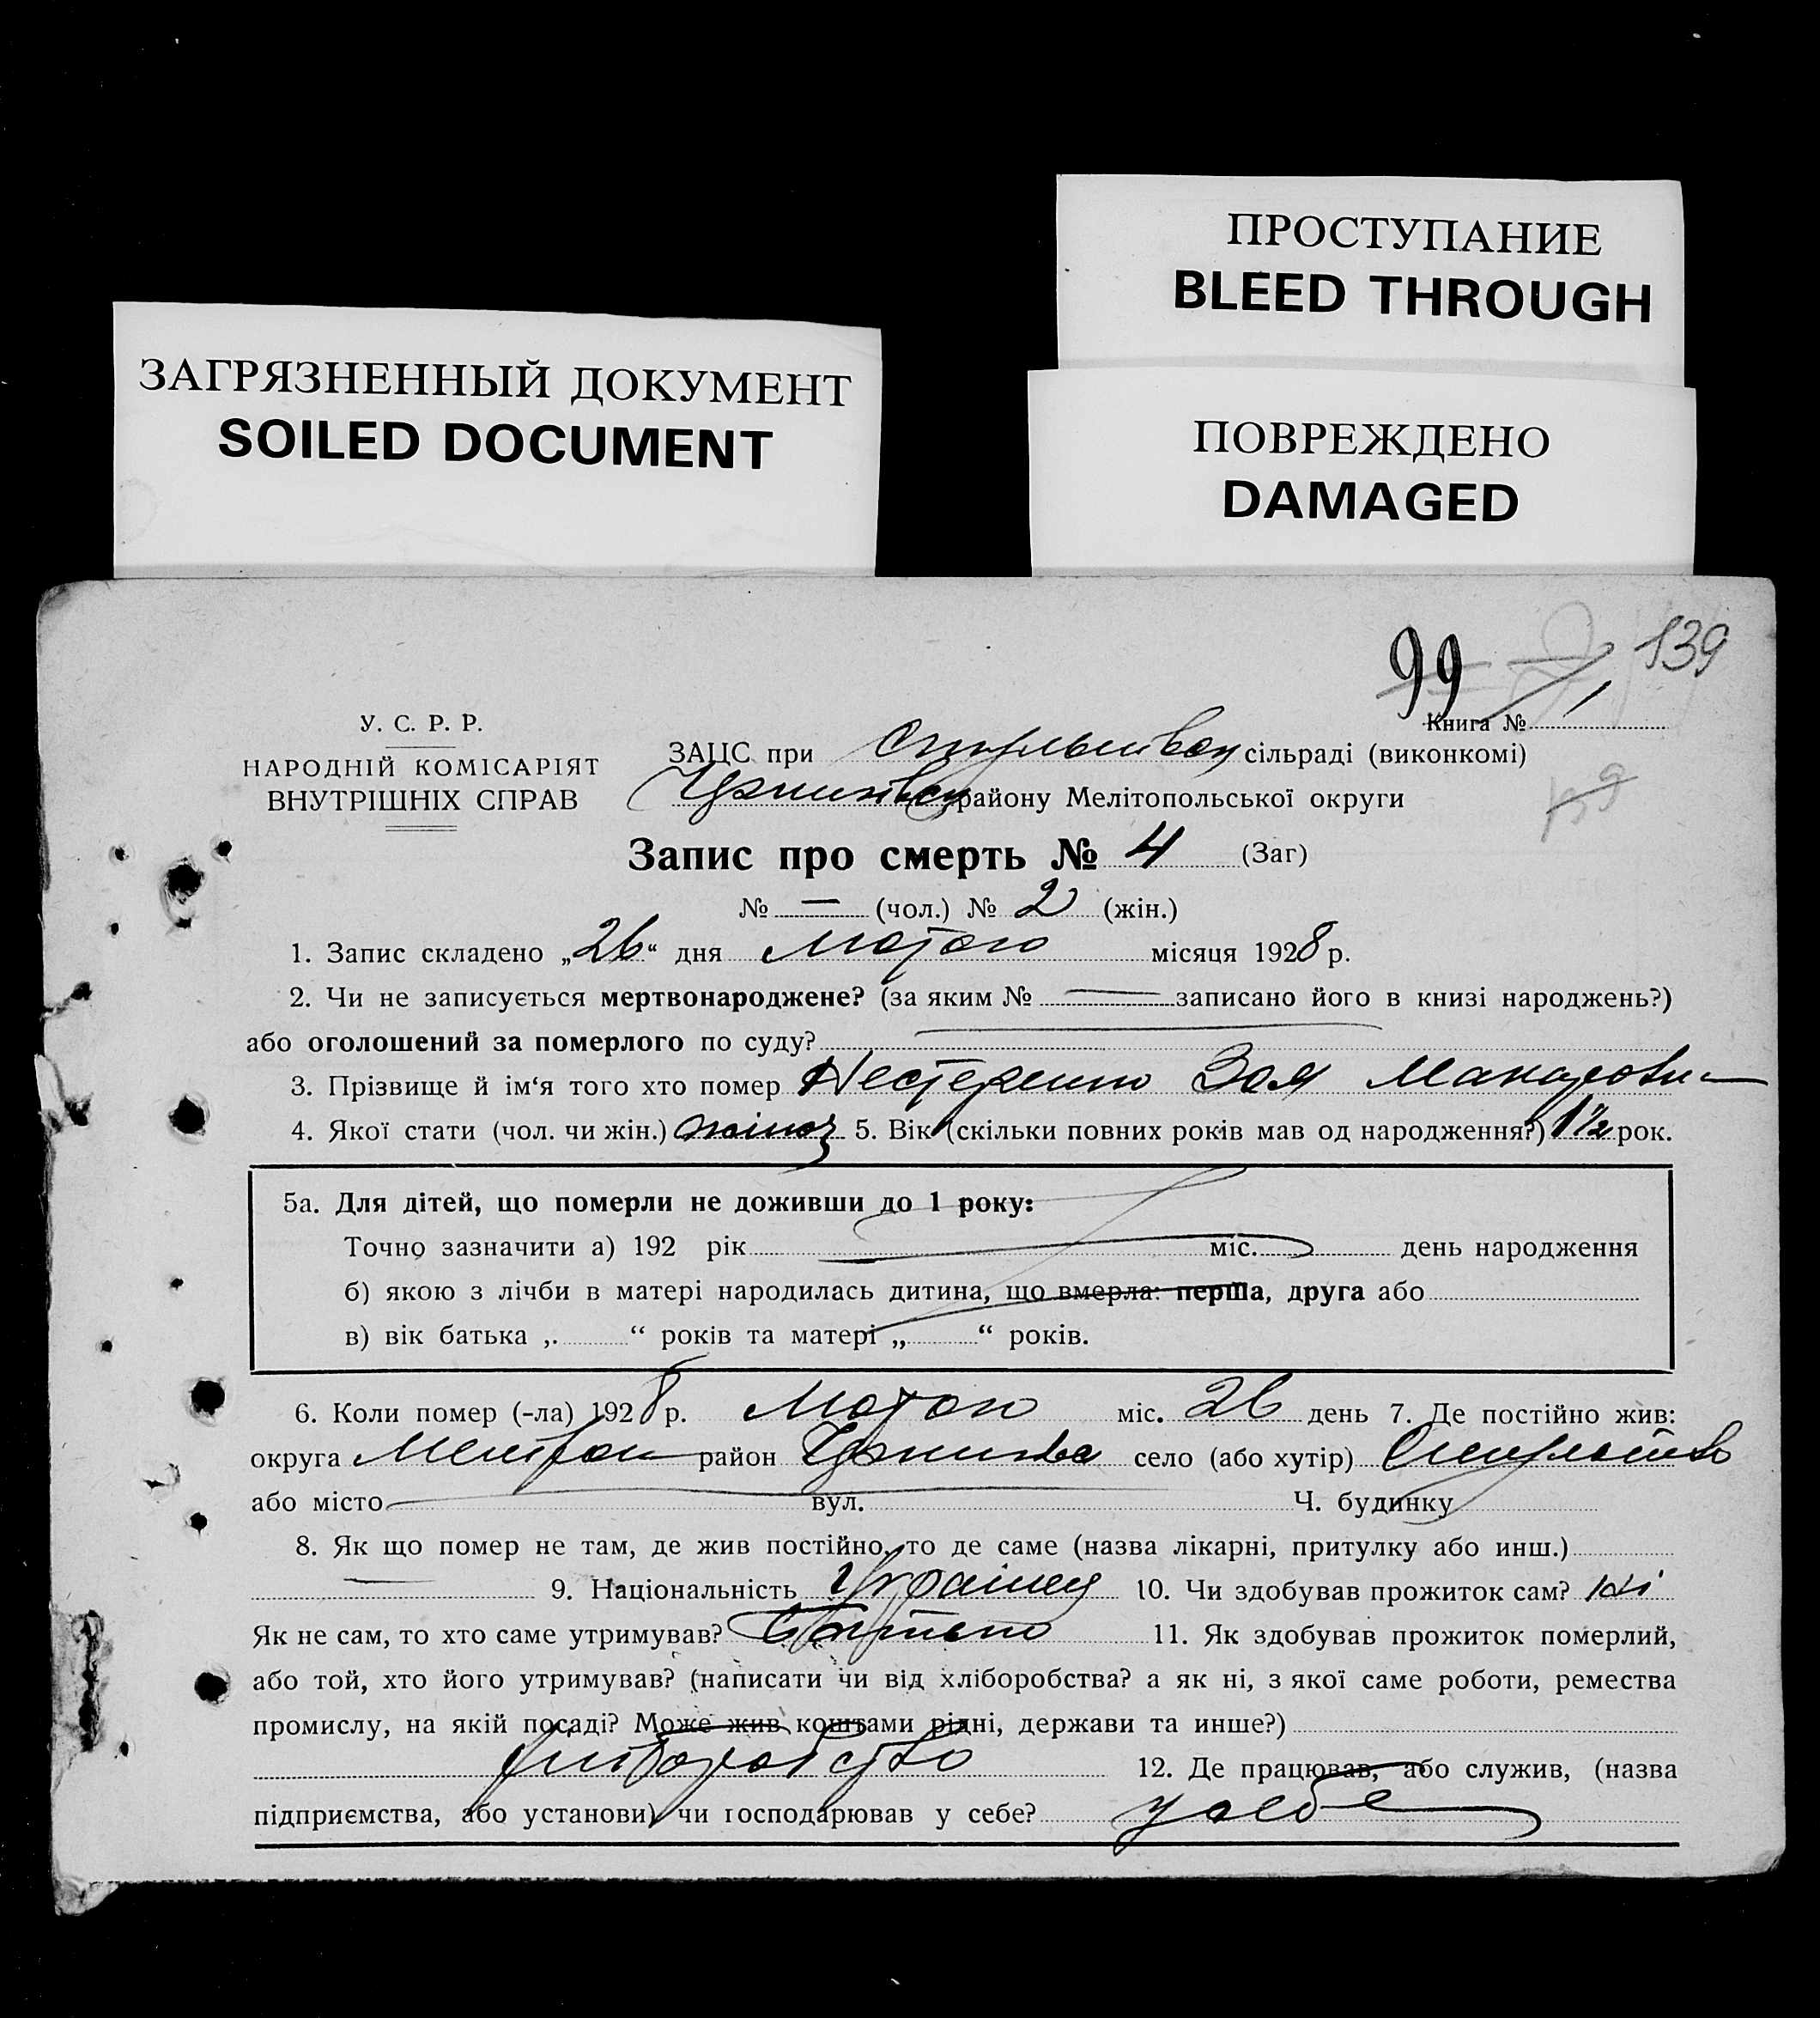 ПРОСТУПАНИЕ
BLEED THROUGH
ЗАГРЯЗНЕННЫЙ ДОКУМЕНТ
SOILED DOCUMENT
ПОВРЕЖДЕНО
DAMAGED
99 139
Книга №
У. С. Р. Р.
НАРОДНІЙ КОМІСАРІЯТ
ВНУТРІШНІХ СПРАВ
ЗАЦС при сільраді (виконкомі)
району Мелітопольської округи
139
Запис про смерть № 4 (Заг)
№ — (чол.) № 2 (жін.)
1. Запис складено „26“ дня Лютого місяця 1928 р.
2. Чи не записується мертвонароджене? (за яким № — записано його в книзі народжень?)
або оголошений за померлого по суду?
3. Прізвище й ім‘я того хто помер Нестеренко Зоя Макаровн
4. Якої стати (чол. чи жін.) жіноч 5. Вік (скільки повних років мав од народження?) 1½ рок.
5а. Для дітей, що померли не доживши до 1 року:
Точно зазначити а) 192 рік міс. день народження
б) якою з лічби в матері народилась дитина, що вмерла: перша, друга або
в) вік батька „ “ років та матері „ “ років.
6. Коли помер (-ла) 1928 р. Лютого міс. 26 день 7. Де постійно жив:
округа Мелітоп район село (або хутір)
або місто вул. Ч. будинку
8. Як що помер не там, де жив постійно, то де саме (назва лікарні, притулку або инш.)
— 9. Національність Українец 10. Чи здобував прожиток сам? Ні
Як не сам, то хто саме утримував? Батько 11. Як здобував прожиток померлий,
або той, хто його утримував? (написати чи від хліборобства? а як ні, з якої саме роботи, ремества
промислу, на якій посаді? Може жив коштами рідні, держави та инше?)
хліборобство 12. Де працював, або служив, (назва
підприємства, або установи) чи господарював у себе? у себе